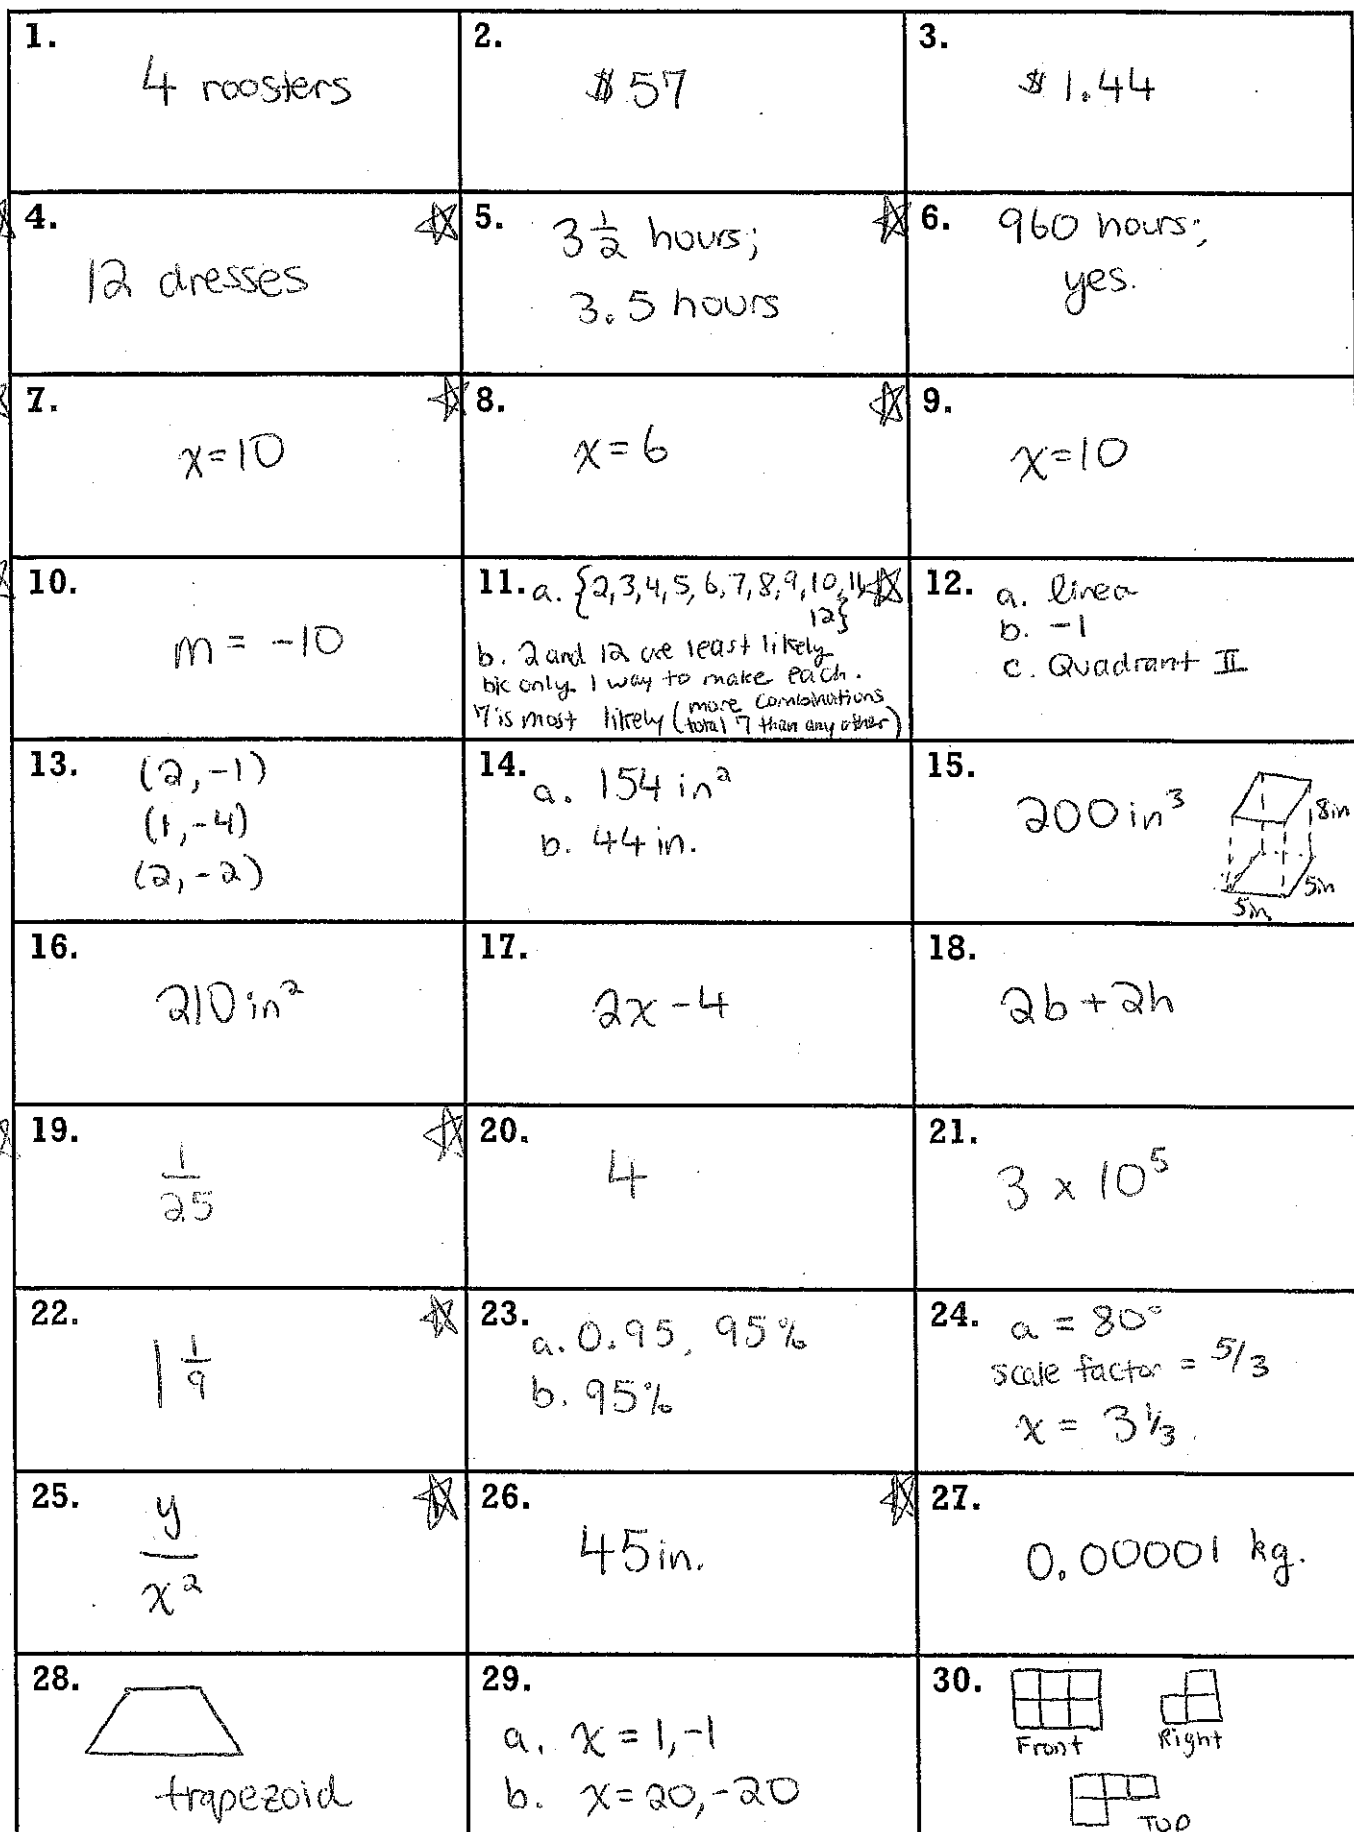 1.
4 roosters
2.
$57
3.
$1.44
4.
12 dresses
5. 3 1/2 hours;
3.5 hours
6. 960 hours;
yes.
7.
x=10
8.
x=6
9.
x=10
10.
m = -10
11. a. {2,3,4,5,6,7,8,9,10,11,
12}
b. 2 and 12 are least likely
b/c only 1 way to make each.
7 is most likely (more combinations
total 7 than any other)
12. a. linear
b. -1
c. Quadrant II
13. (2,-1)
(1,-4)
(2,-2)
14. a. 154 in²
b. 44 in.
15.
200 in³
8in
5in
5in
16.
210 in²
17.
2x-4
18.
2b+2h
19.
1/25
20.
4
21.
3 x 10⁵
22.
1 1/9
23. a. 0.95, 95%
b. 95%
24. a = 80°
scale factor = 5/3
x = 3 1/3
25. y/x²
26.
45in.
27.
0.00001 kg.
28.
trapezoid
29.
a. x = 1,-1
b. x=20,-20
30.
Front
Right
Top